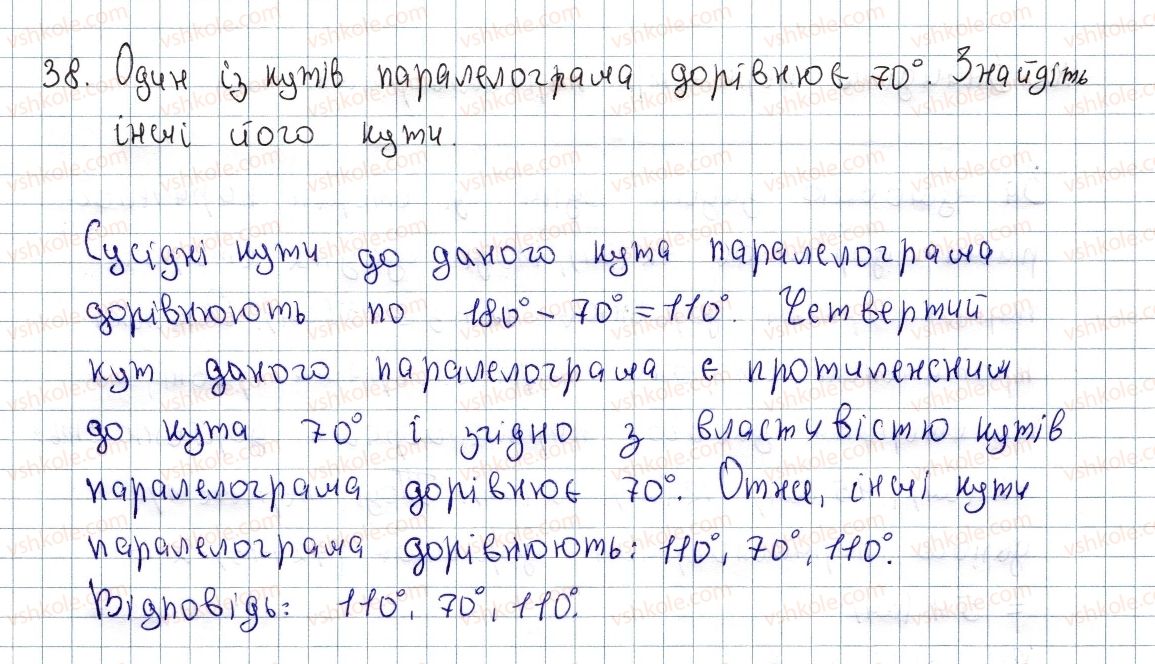 38. Один із кутів паралелограма дорівнює 70°. Знайдіть
інші його кути.
Сусідні кути до даного кута паралелограма
дорівнюють по 180° - 70° = 110°. Четвертий
кут даного паралелограма є протилежним
до кута 70° і згідно з властивістю кутів
паралелограма дорівнює 70°. Отже, інші кути
паралелограма дорівнюють: 110°, 70°, 110°.
Відповідь: 110°, 70°, 110°.